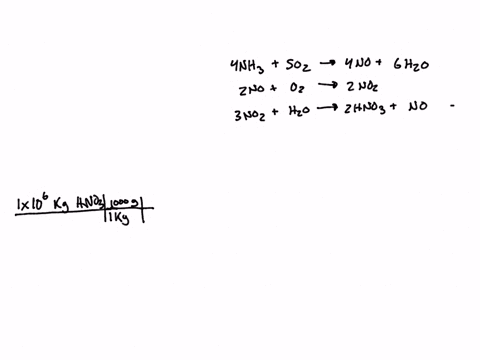 4NH3 + 5O2 → 4NO + 6H2O
2NO + O2 → 2NO2
3NO2 + H2O → 2HNO3 + NO -
1x10^6 Kg HNO3 | 1000g |
1Kg